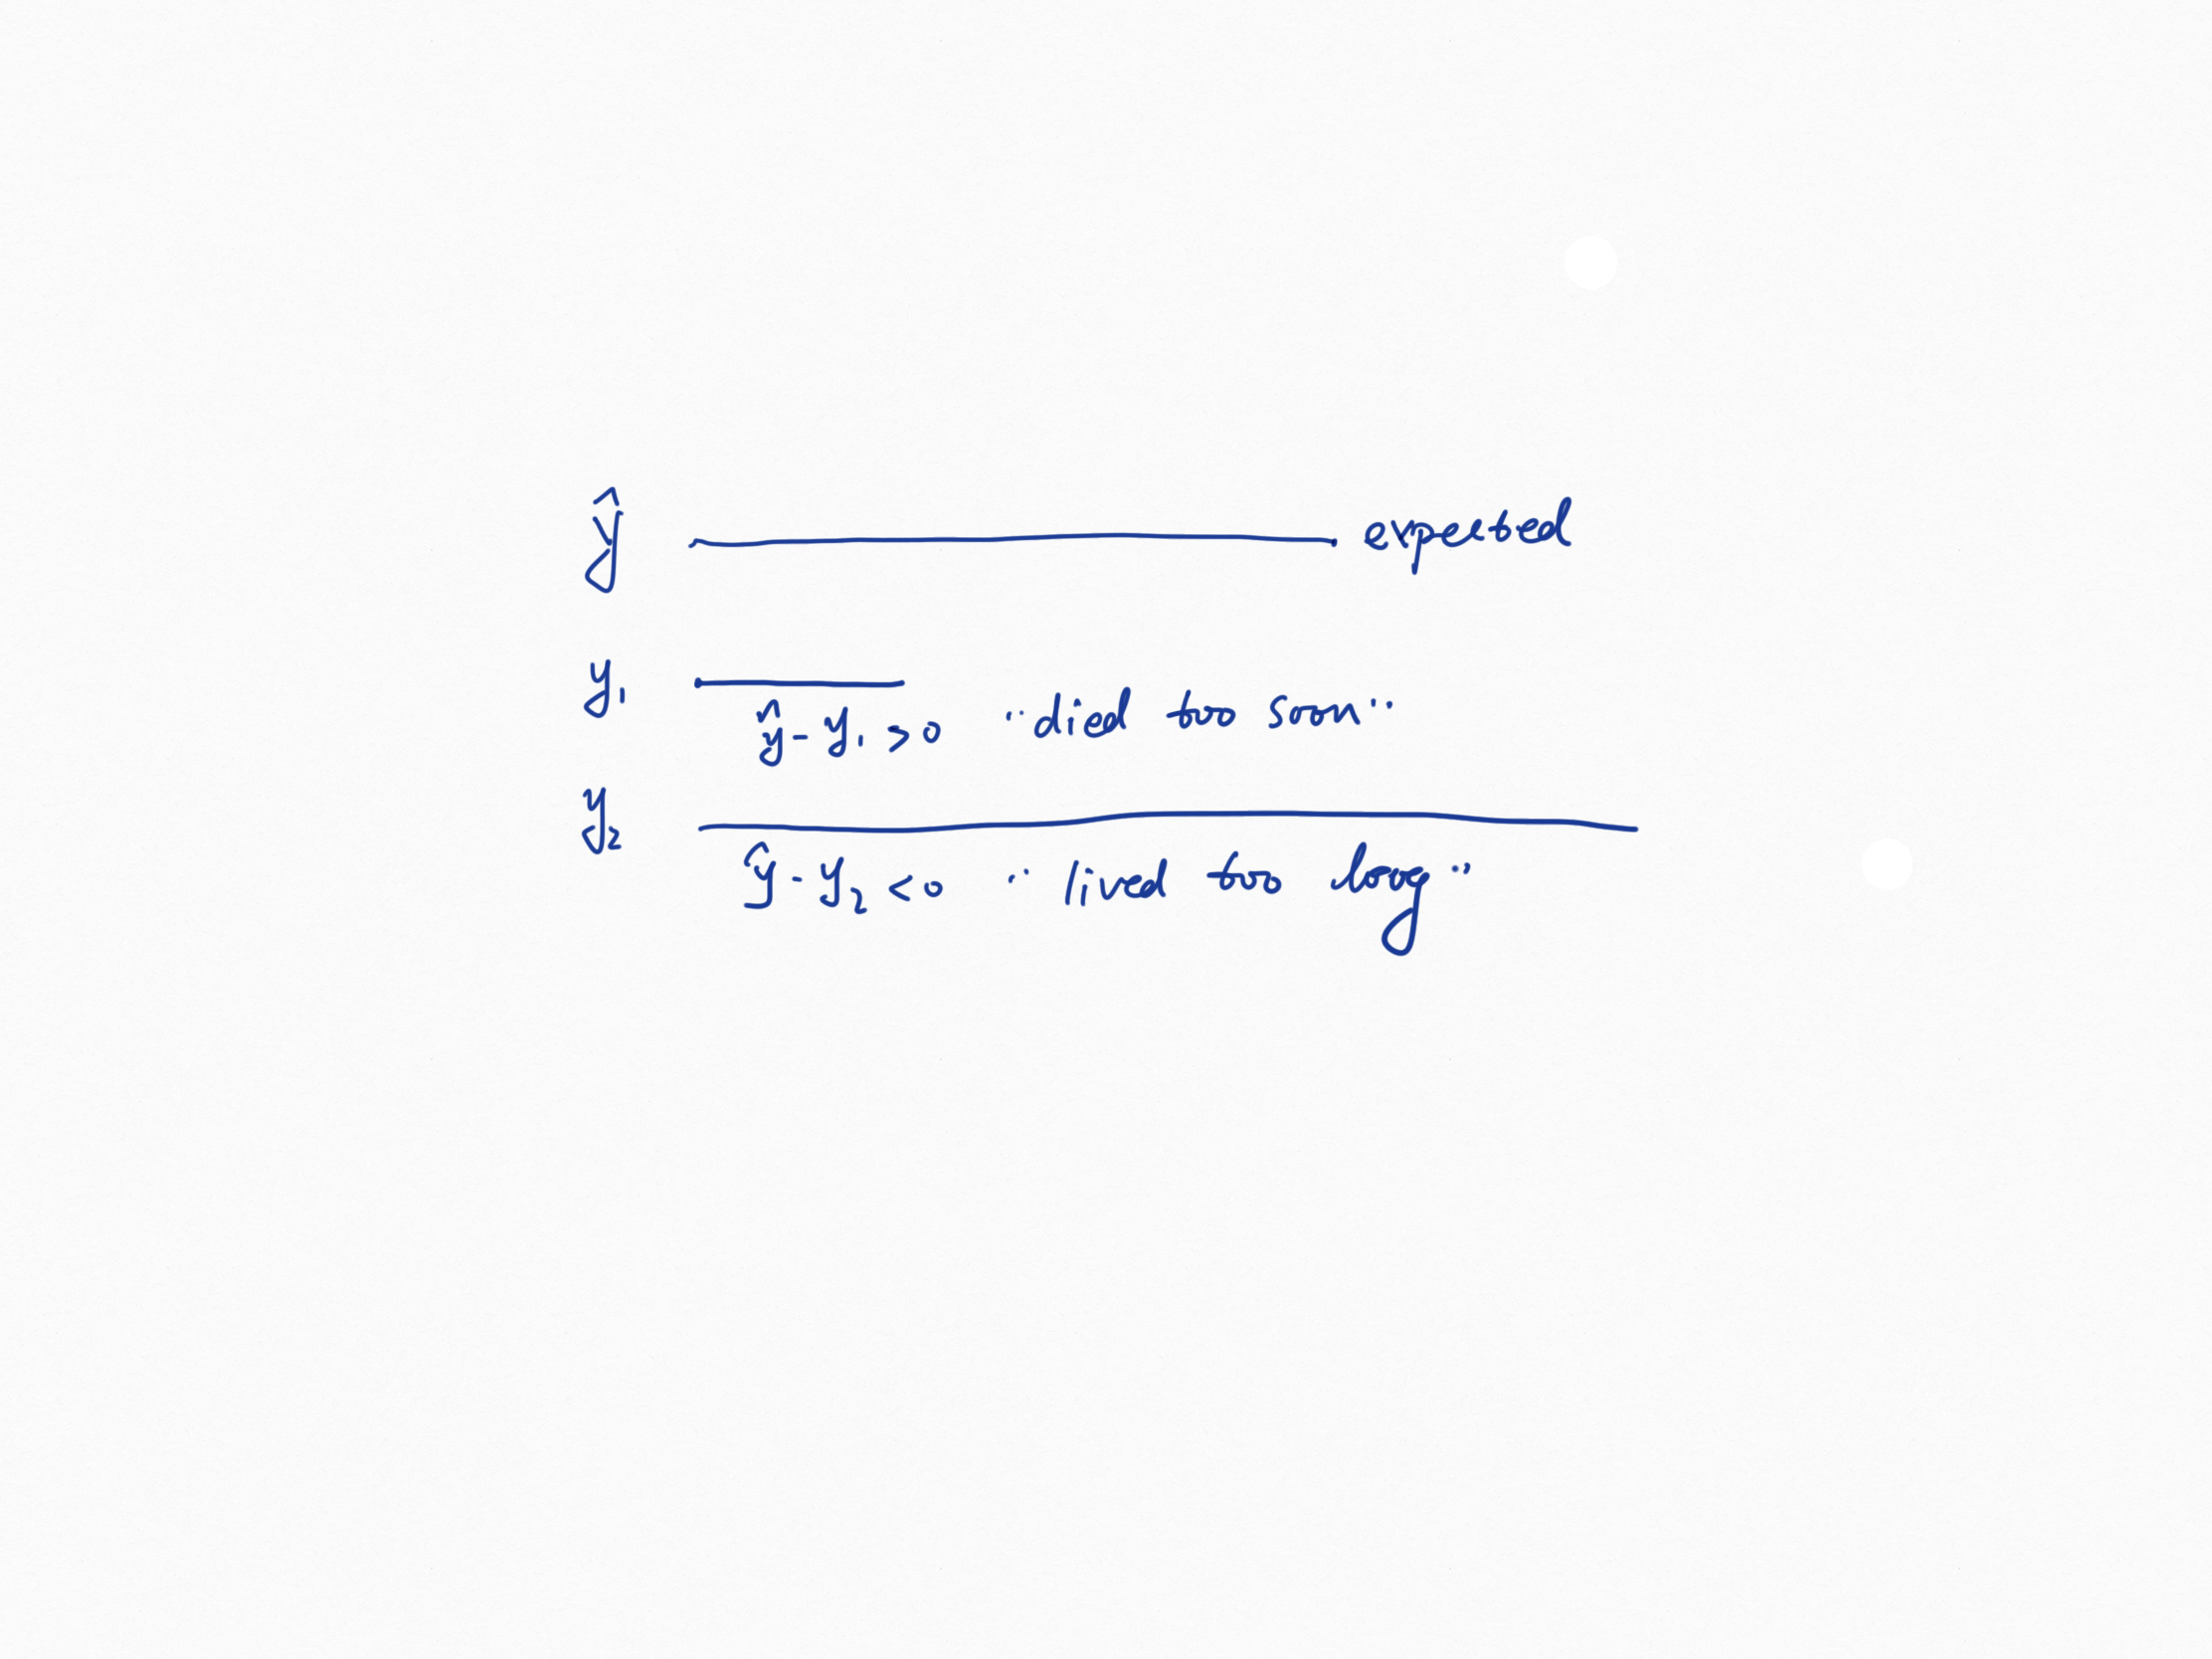 ŷ expected
y₁
ŷ - y₁ > 0 "died too soon"
y₂
ŷ - y₂ < 0 "lived too long"